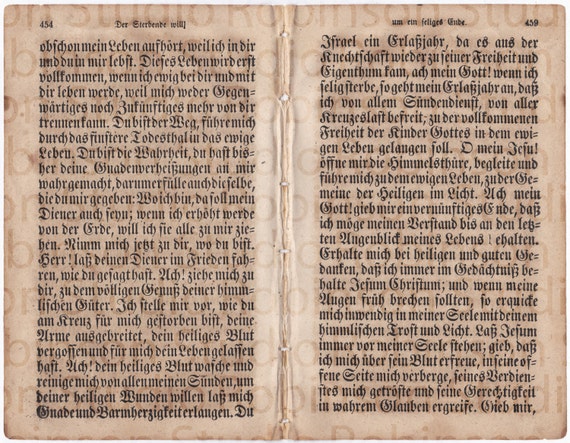 454 Der Sterbende will]
obschon mein Leben aufhört, weil ich in dir
und du in mir lebst. Dieses Leben wird erst
vollkommen, wenn ich ewig bei dir und mit
dir leben werde, weil mich weder Gegen-
wärtiges noch Zukünftiges mehr von dir
trennen kann. Du bist der Weg, führe mich
durch das finstere Todesthal in das ewige
Leben. Du bist die Wahrheit, du hast bis-
her deine Gnadenverheißungen an mir
wahr gemacht, darum erfülle auch dieselbe,
die du mir gegeben: Wo ich bin, da soll mein
Diener auch seyn; wenn ich erhöht werde
von der Erde, will ich sie alle zu mir zie-
hen. Nimm mich jetzt zu dir, wo du bist.
Herr! laß deinen Diener im Frieden fah-
ren, wie du gesagt hast. Ach! ziehe mich zu
dir, zu dem völligen Genuß deiner himm-
lischen Güter. Ich stelle mir vor, wie du
am Kreuz für mich gestorben bist, deine
Arme ausgebreitet, dein heiliges Blut
vergossen und für mich dein Leben gelassen
hast. Ach! dein heiliges Blut wasche und
reinige mich von allen meinen Sünden, um
deiner heiligen Wunden willen laß mich
Gnade und Barmherzigkeit erlangen. Du
um ein seliges Ende. 459
Israel ein Erlaßjahr, da es aus der
Knechtschaft wieder zu seiner Freiheit und
Eigenthum kam, ach mein Gott! wenn ich
selig sterbe, so geht mein Erlaßjahr an, daß
ich von allem Sündendienst, von aller
Kreuzeslast befreit, zu der vollkommenen
Freiheit der Kinder Gottes in dem ewi-
gen Leben gelangen soll. O mein Jesu!
öffne mir die Himmelsthüre, begleite und
führe mich zu dem ewigen Leben, zu der Ge-
meine der Heiligen im Licht. Ach mein
Gott! gieb mir ein vernünftiges Ende, daß
ich möge meinen Verstand bis an den letz-
ten Augenblick meines Lebens ehalten.
Erhalte mich bei heiligen und guten Ge-
danken, daß ich immer im Gedächtniß be-
halte Jesum Christum; und wenn meine
Augen früh brechen sollten, so erquicke
mich inwendig in meiner Seele mit deinem
himmlischen Trost und Licht. Laß Jesum
immer vor meiner Seele stehen; gieb, daß
ich mich über sein Blut erfreue, in seine of-
fene Seite mich verberge, seines Verdien-
stes mich getröste und seine Gerechtigkeit
in wahrem Glauben ergreife. Gieb mir,